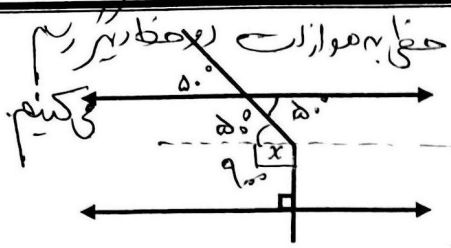 خطی به موازات دو خط دیگر رسم
می کنیم.
۵۰°
۵۰°
۵۰°
x
۹۰°